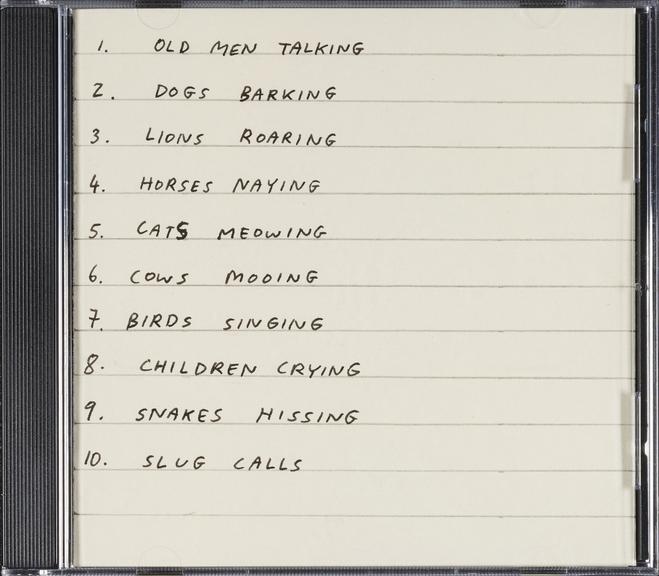 1. OLD MEN TALKING
2. DOGS BARKING
3. LIONS ROARING
4. HORSES NAYING
5. CATS MEOWING
6. COWS MOOING
7. BIRDS SINGING
8. CHILDREN CRYING
9. SNAKES HISSING
10. SLUG CALLS